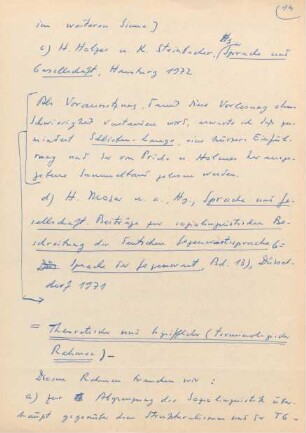 (14
im weiteren Sinne]
c) H. Holzer u. K. Steinbacher, Hg, Sprache und
Gesellschaft, Hamburg 1972
Als Voraussetzung, damit diese Vorlesung ohne
Schwierigkeit verstanden wird, erwarte ich dass
Schlieben-Lange, eine kürzere Einfüh-
rung und der von Pride u. Holmes heraus-
gegebene Sammelband gelesen werden.
d) H. Moser u. a., Hg, Sprache und Ge-
sellschaft. Beiträge zur soziolinguistischen Be-
schreibung der deutschen Gegenwartssprache (=
Sprache der Gegenwart, Bd. 13), Düssel-
dorf 1971
= Theoretischer und begrifflicher (terminologischer
Rahmen) -
Diesen Rahmen brauchen wir:
a) zur Abgrenzung der Soziolinguistik über-
haupt gegenüber dem Strukturalismus und der TG-